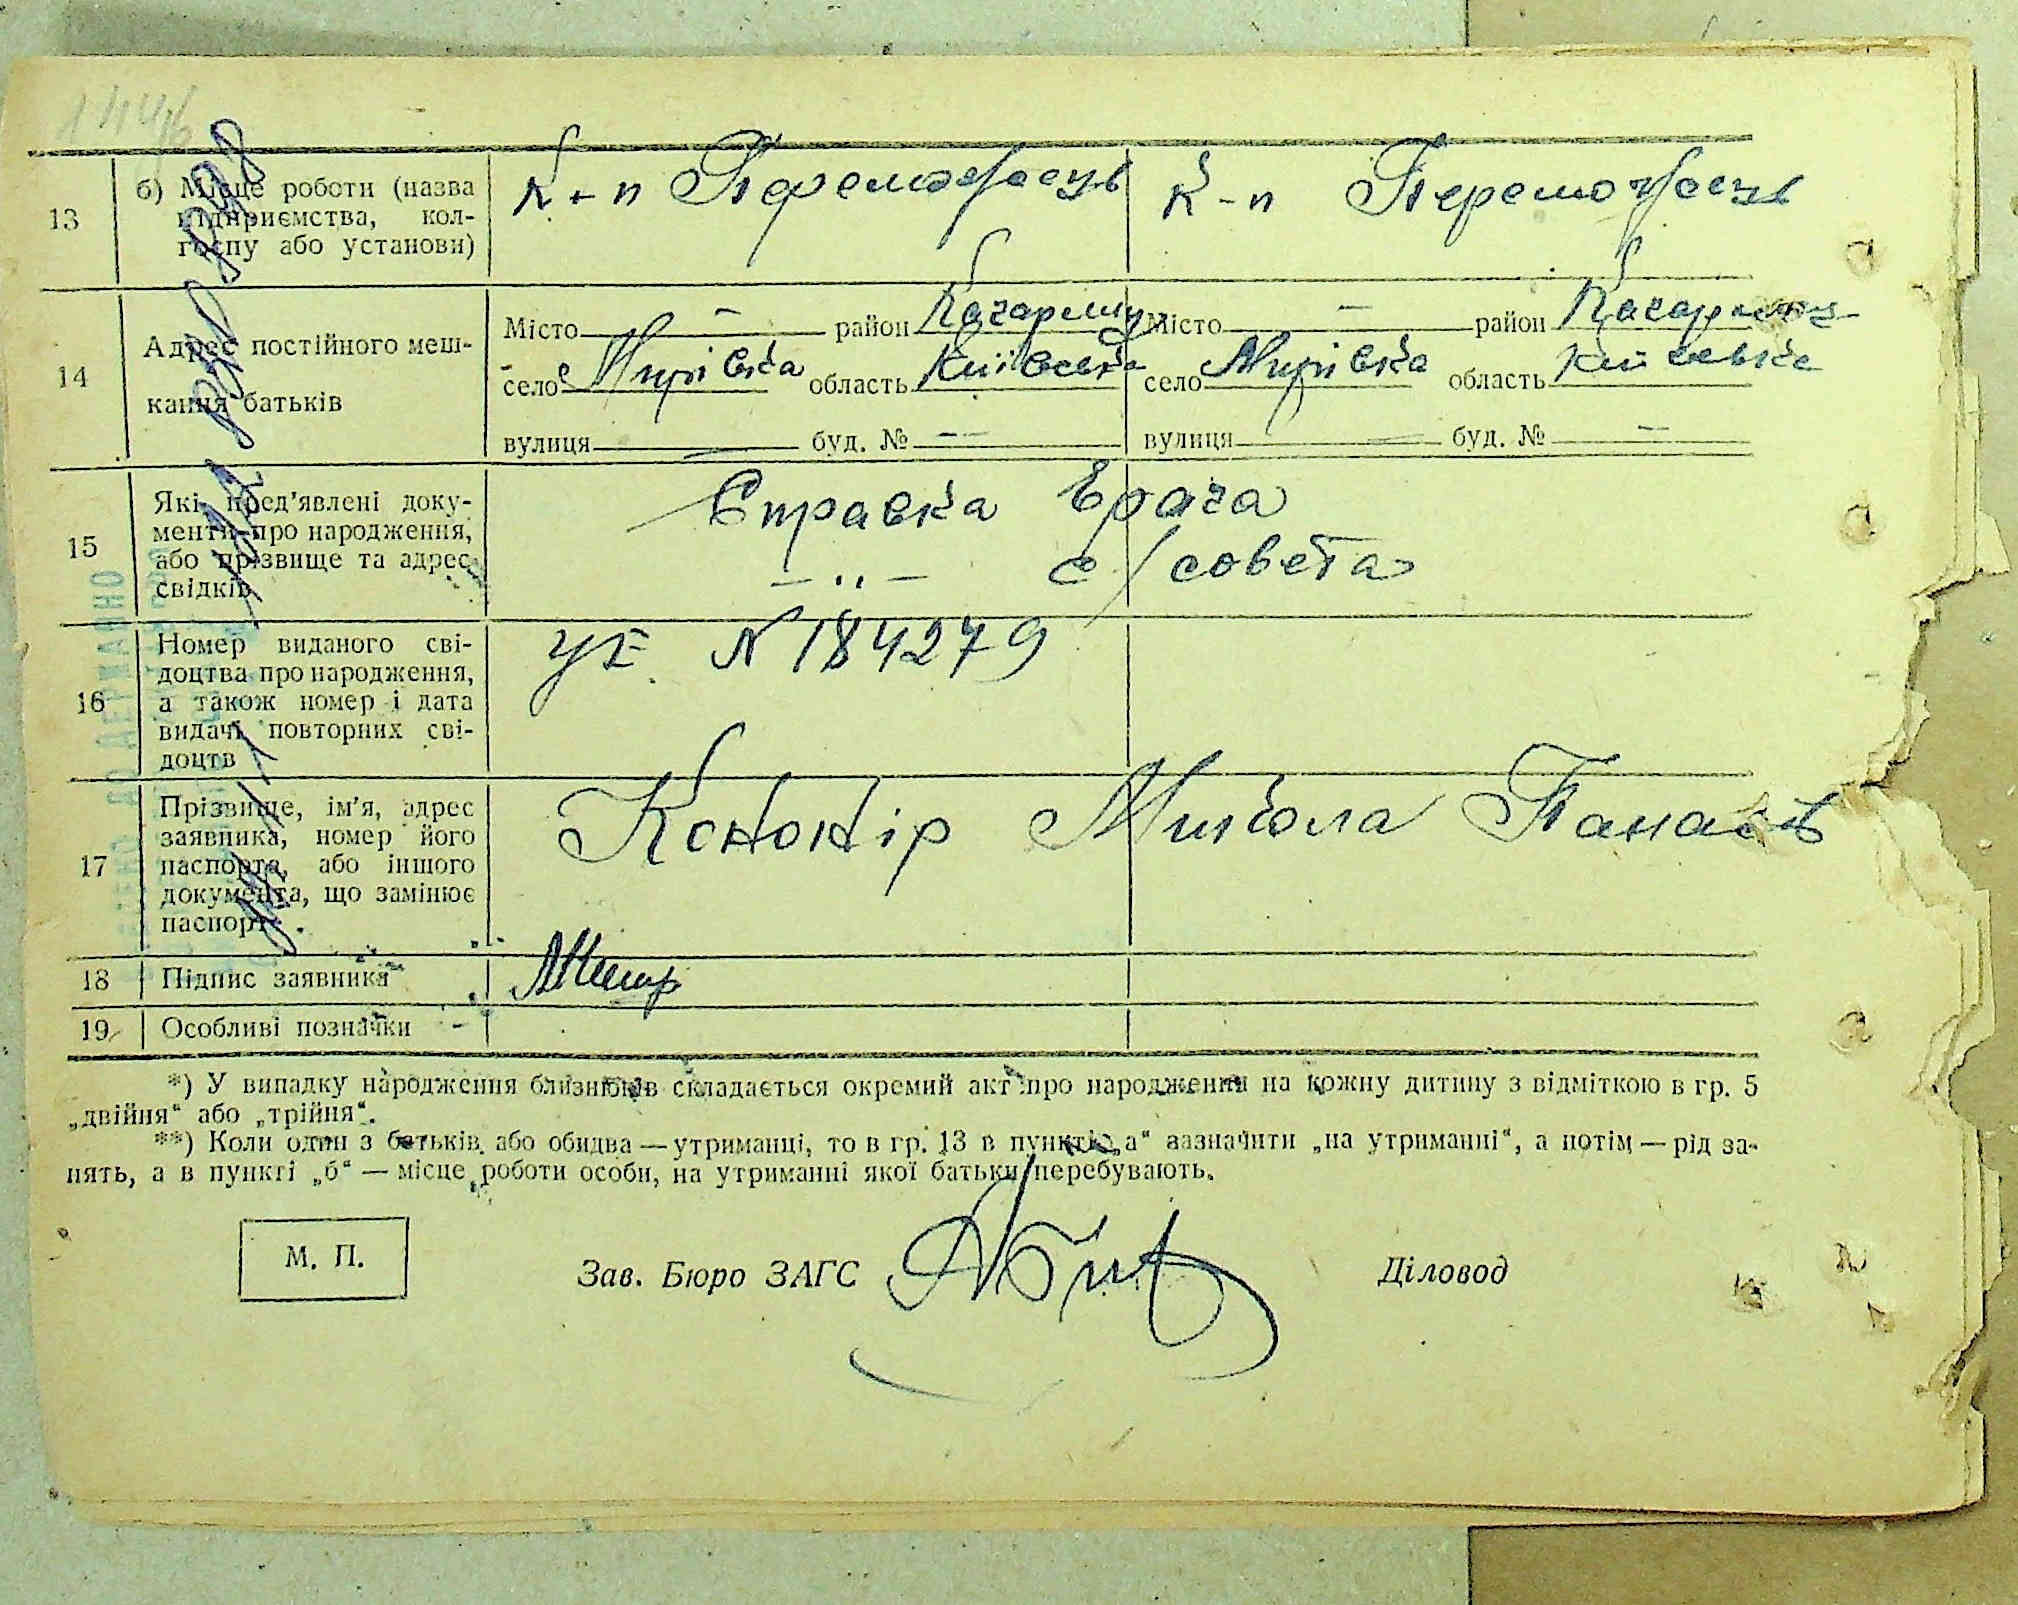 13
б) Місце роботи (назва підприємства, кол-
госпу або установи)
к-п Переможець
к-п Переможець
14
Адрес постійного меш-
кання батьків
Місто — район Кагарлиц
село Мирівка область Київська
вулиця — буд. № —
Місто — район Кагарлиц
село Мирівка область Київська
вулиця — буд. № —
15
Які пред'явлені доку-
менти про народження,
або прізвище та адрес
свідків
Справка врача
— „ — с/совета
16
Номер виданого сві-
доцтва про народження,
а також номер і дата
видачі повторних сві-
доцтв
N 184279
17
Прізвище, ім'я, адрес
заявника, номер його
паспорта, або іншого
документа, що замінює
паспорт.
Кононір Микола Панасів
18
Підпис заявника
19
Особливі позначки
*) У випадку народження близнюків складається окремий акт про народження на кожну дитину з відміткою в гр. 5
„двійня“ або „трійня“.
**) Коли один з батьків, або обидва — утриманці, то в гр. 13 в пункті „а“ зазначити „на утриманні“, а потім — рід за-
нять, а в пункті „б“ — місце роботи особи, на утриманні якої батьки перебувають.
М. П.
Зав. Бюро ЗАГС
Діловод